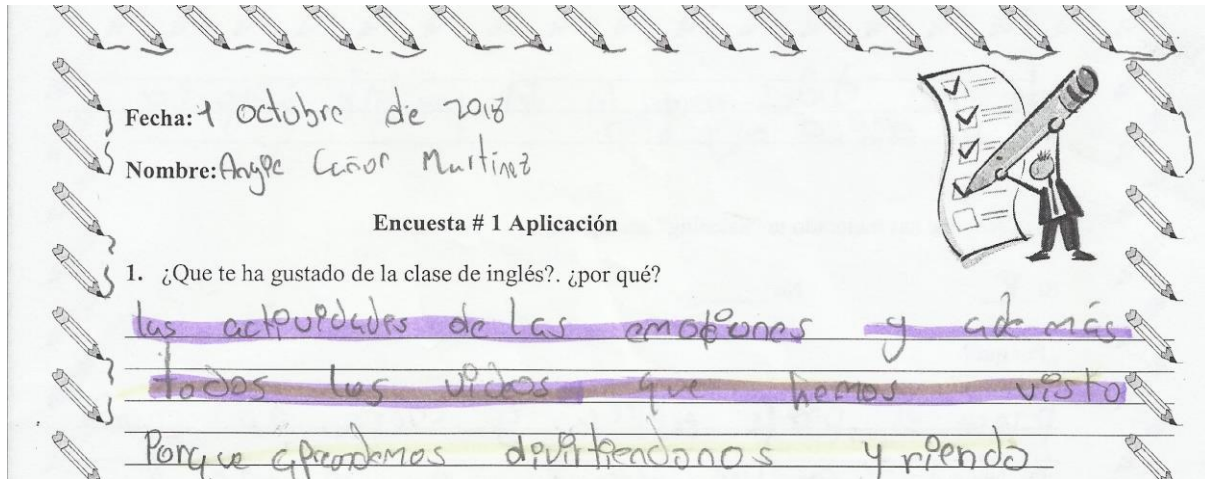 Fecha: 1 octubre de 2018
Nombre: Angie Cañor Martinez
Encuesta # 1 Aplicación
1. ¿Que te ha gustado de la clase de inglés?. ¿por qué?
las actividades de las emociones y además
todos los videos que hemos visto
Porque aprendemos divirtiendonos y riendo